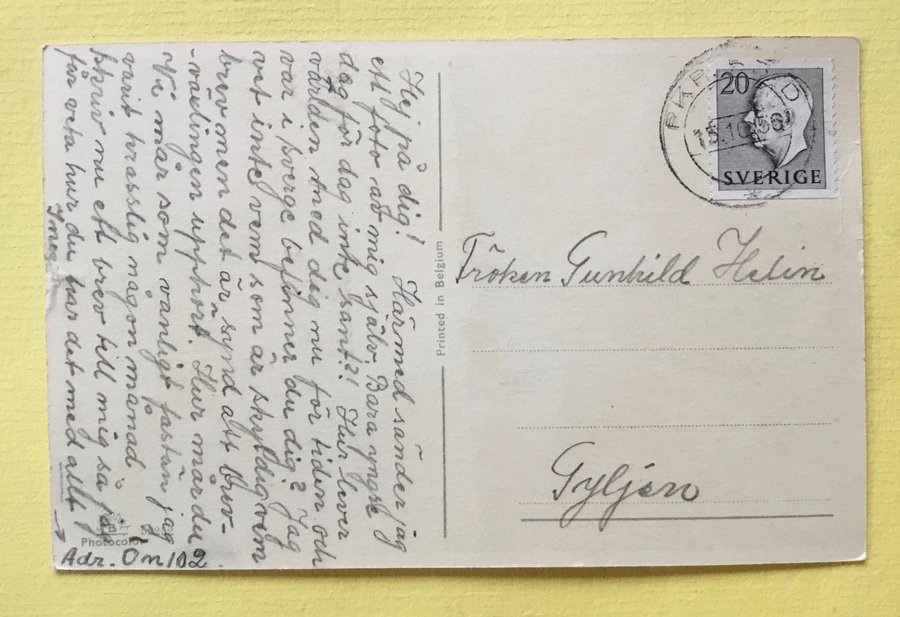 Hej på dig! Härmed sänder jag
ett foto av mig själv. Bara yngste
dag för dag inte sant?! Hur lever
världen med dig nu för tiden och
var i sverge befinner du dig? Jag
vet inte vem som är skyldig vem
brev men det är synd att brev-
växlingen upphört. Hur mår du
Vi mår som vanligt fastän jag
varit krasslig någon månad
skriv nu ett brev till mig så jag
får veta hur du har det med allt
Adr. Ön 102
Photocolor
Printed in Belgium
20
SVERIGE
Fröken Gunhild Helin
Gyljen